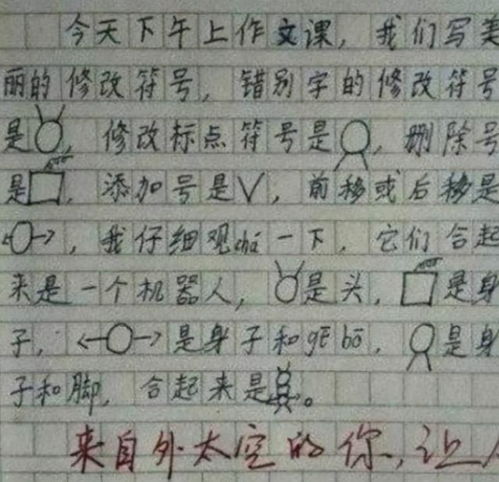 今天下午上作文课，我们写美
丽的修改符号，错别字的修改符号
是，修改标点符号是，删除号
是，添加号是∨，前移或后移是
←○→，我仔细观chá一下，它们合起
来是一个机器人，是头，是身
子，←○→是身子和gē bō，是身
子和脚，合起来是。
来自外太空的你，让